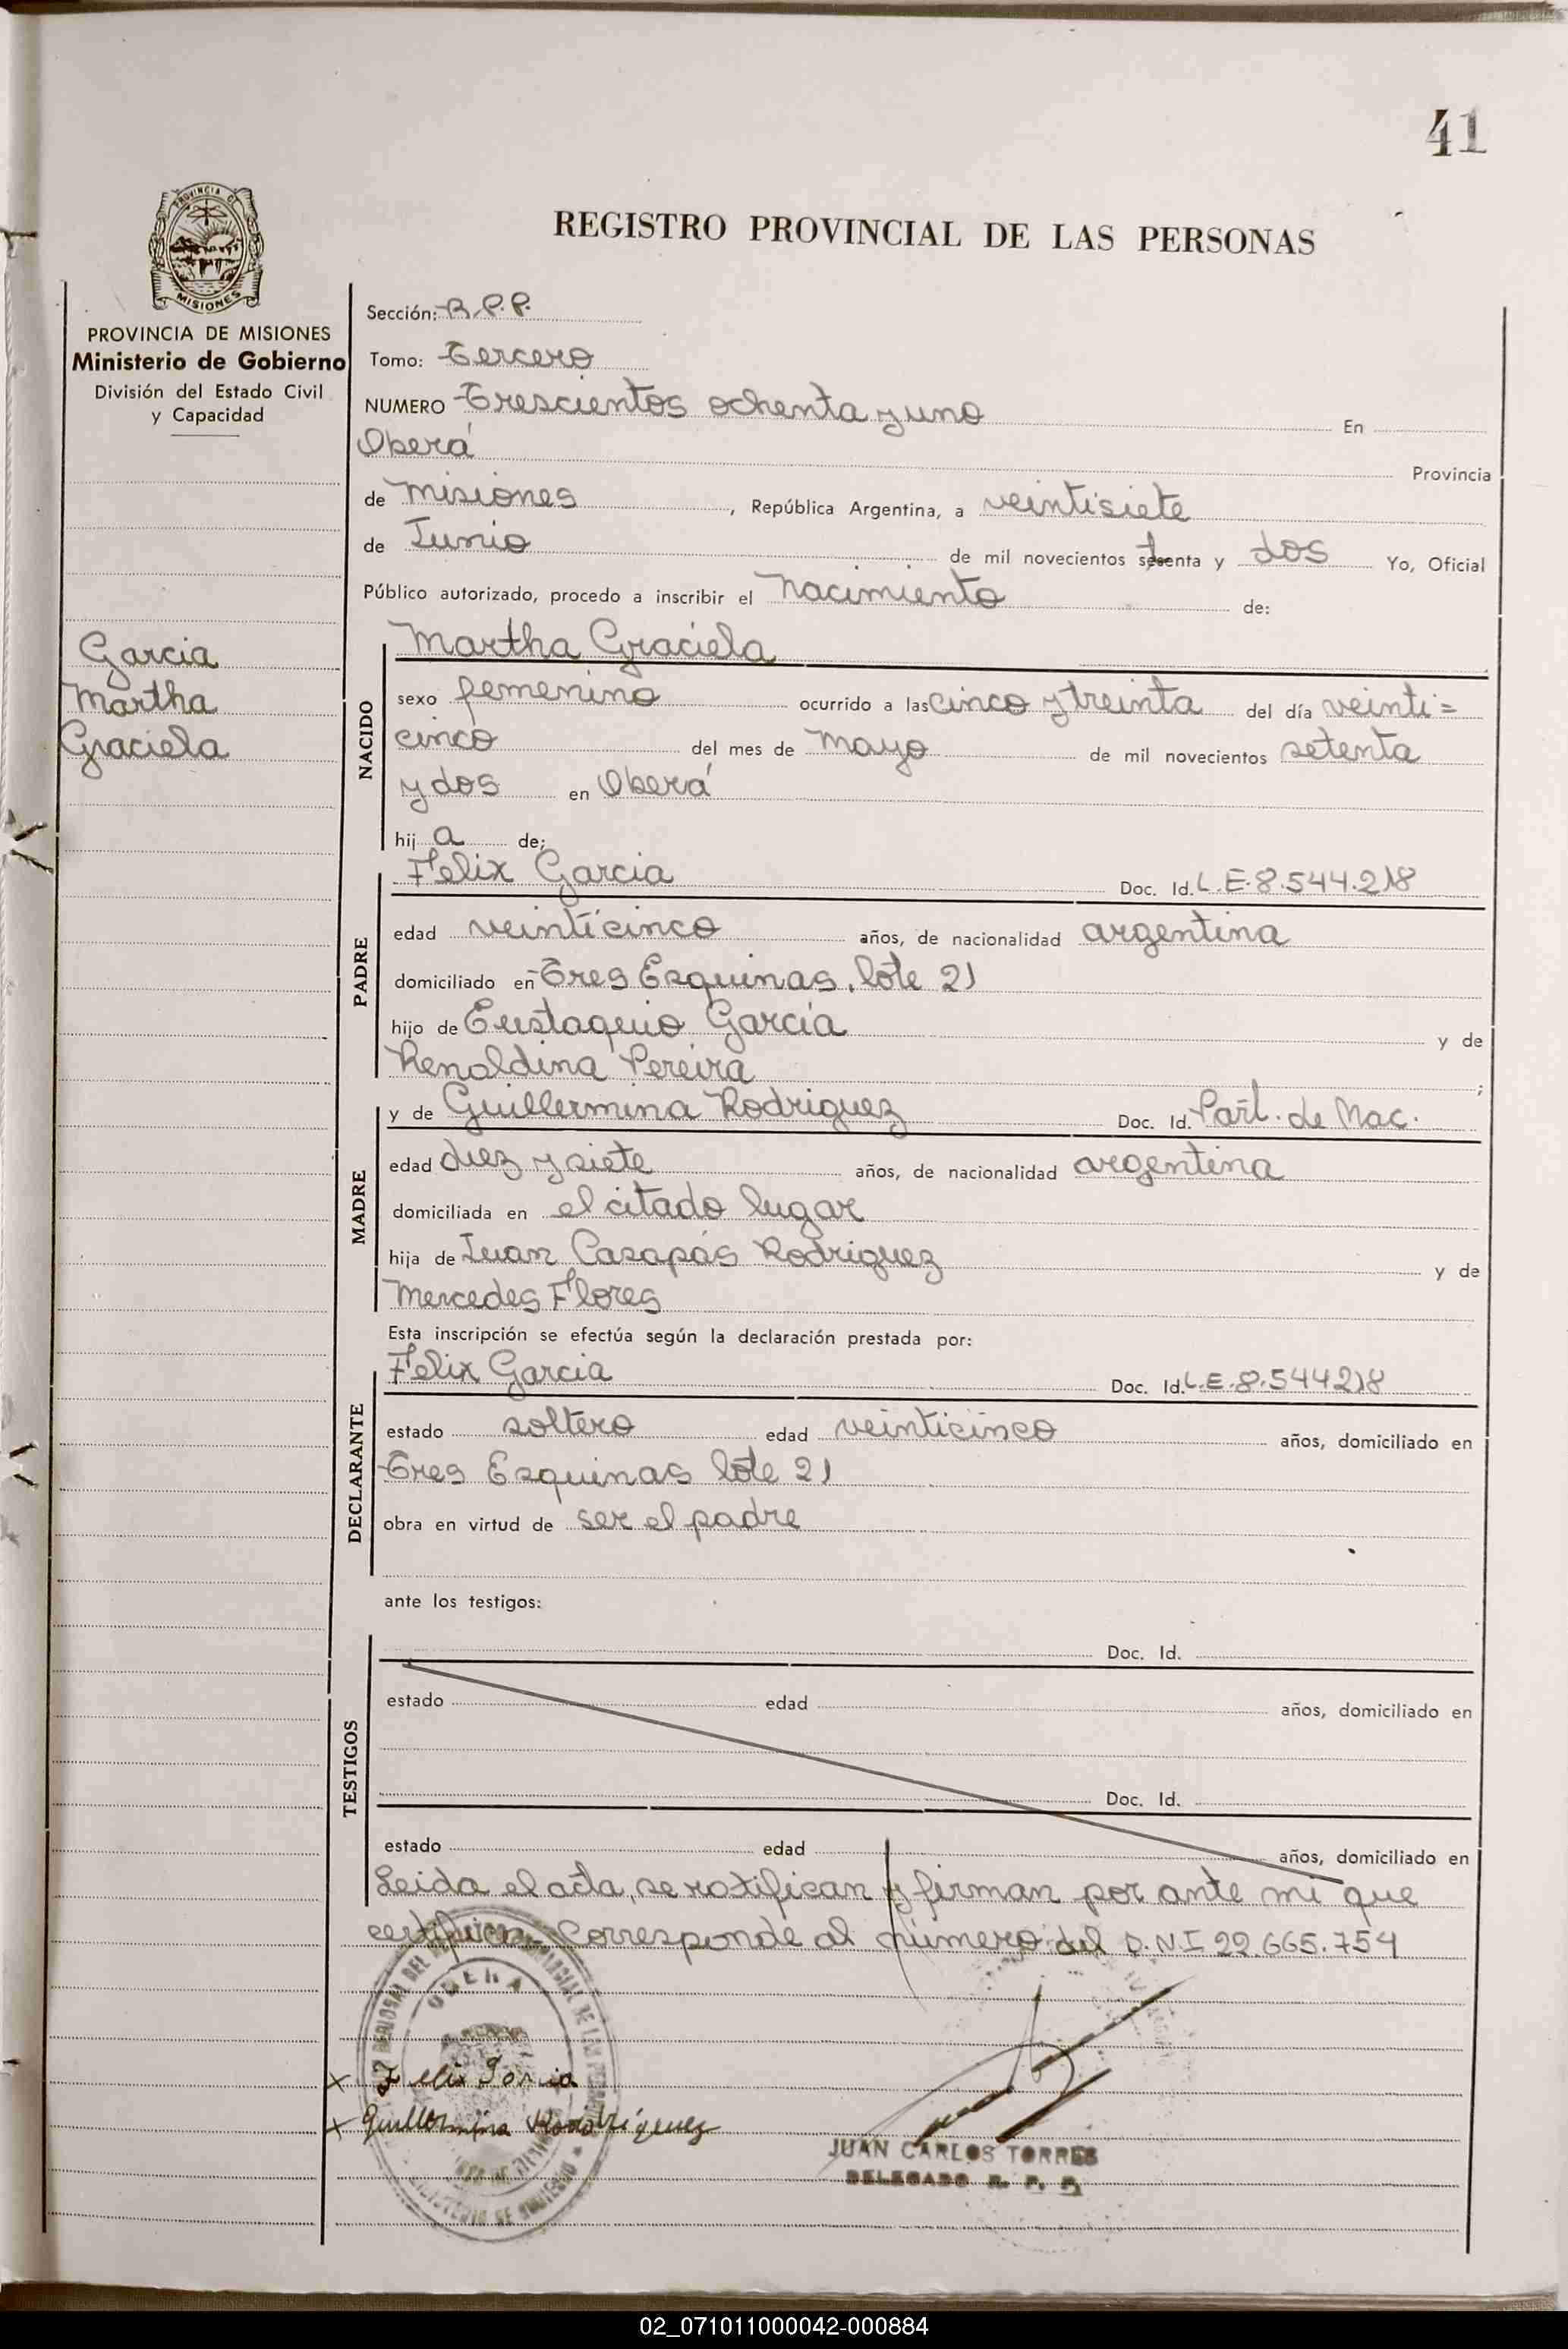 41
REGISTRO PROVINCIAL DE LAS PERSONAS
PROVINCIA DE
MISIONES
PROVINCIA DE MISIONES
Ministerio de Gobierno
División del Estado Civil
y Capacidad
Garcia
Martha
Graciela
Sección: R.P.P.
Tomo: Tercero
NUMERO Trescientos ochenta y uno En
Oberá Provincia
de Misiones, República Argentina, a veintisiete
de Junio de mil novecientos setenta y dos Yo, Oficial
Público autorizado, procedo a inscribir el nacimiento de:
NACIDO
Martha Graciela
sexo femenino ocurrido a las cinco y treinta del día veinti=
cinco del mes de mayo de mil novecientos setenta
y dos en Oberá
hij a de;
PADRE
Felix Garcia Doc. Id. L.E.8.544.218
edad veinticinco años, de nacionalidad argentina
domiciliado en Tres Esquinas, lote 21
hijo de Eustaquio García y de
Renoldina Pereira ;
MADRE
y de Guillermina Rodriguez Doc. Id. Part. de Nac.
edad diez y siete años, de nacionalidad argentina
domiciliada en el citado lugar
hija de Juan Casapás Rodriguez y de
Mercedes Flores
Esta inscripción se efectúa según la declaración prestada por:
DECLARANTE
Felix Garcia Doc. Id. L.E.8.544218
estado soltero edad veinticinco años, domiciliado en
Tres Esquinas lote 21
obra en virtud de ser el padre
ante los testigos:
TESTIGOS
Doc. Id.
estado edad años, domiciliado en
Doc. Id.
estado edad años, domiciliado en
Leida el acta, se ratifican y firman por ante mi que
certifico.- Corresponde al número del D.N.I 22.665.754
OBERA
x Felix Garcia
x Guillermina Rodriguez
JUAN CARLOS TORRES
DELEGADO R. P. P.
02_071011000042-000884